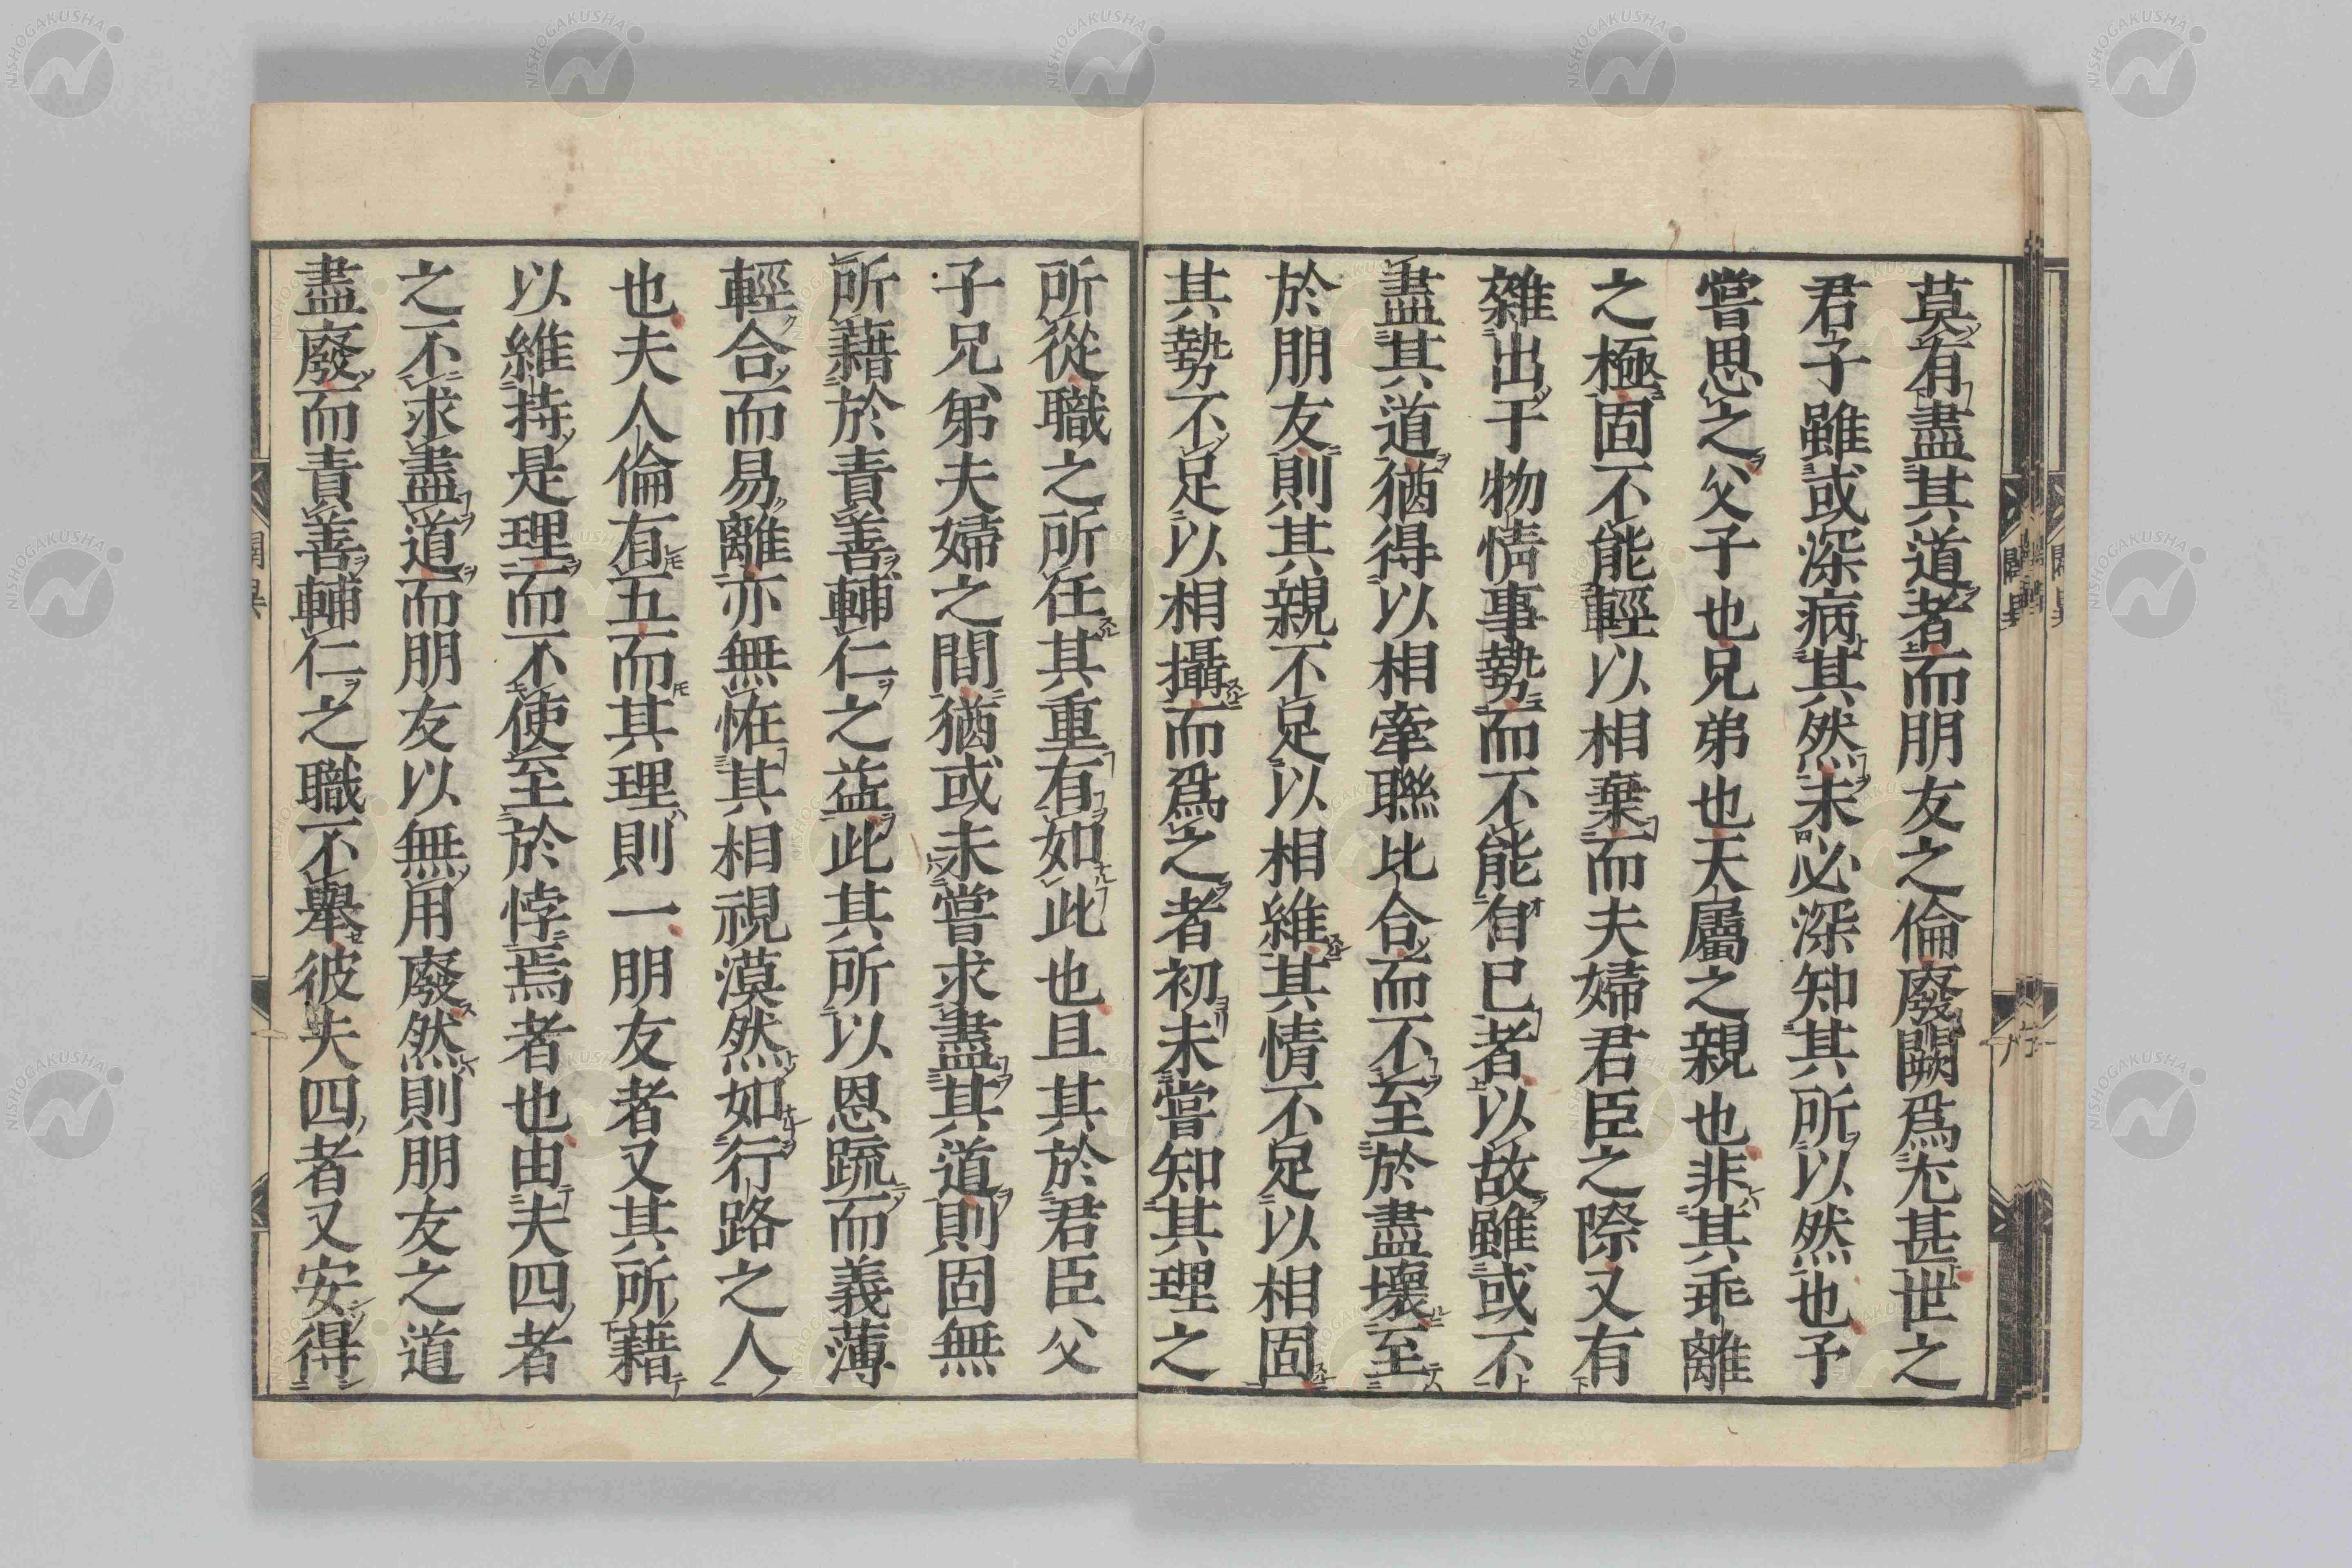 莫有盡其道者而朋友之倫廢闕爲尤甚世之
君子雖或深病其然未必深知其所以然也予
嘗思之父子也兄弟也天屬之親也非其乖離
之極固不能輕以相棄而夫婦君臣之際又有
雜出于物情事勢而不能自已者以故雖或不
盡其道猶得以相牽聯比合而不至於盡壞至
於朋友則其親不足以相維其情不足以相固
其勢不足以相攝而爲之者初未嘗知其理之
所從職之所任其重有如此也且其於君臣父
子兄弟夫婦之間猶或未嘗求盡其道則固無
所藉於責善輔仁之益此其所以恩疏而義薄
輕合而易離亦無恠其相視漠然如行路之人
也夫人倫有五而其理則一朋友者又其所藉
以維持是理而不使至於悖焉者也由夫四者
之不求盡道而朋友以無用廢然則朋友之道
盡廢而責善輔仁之職不舉彼夫四者又安得
NISHOGAKUSHA